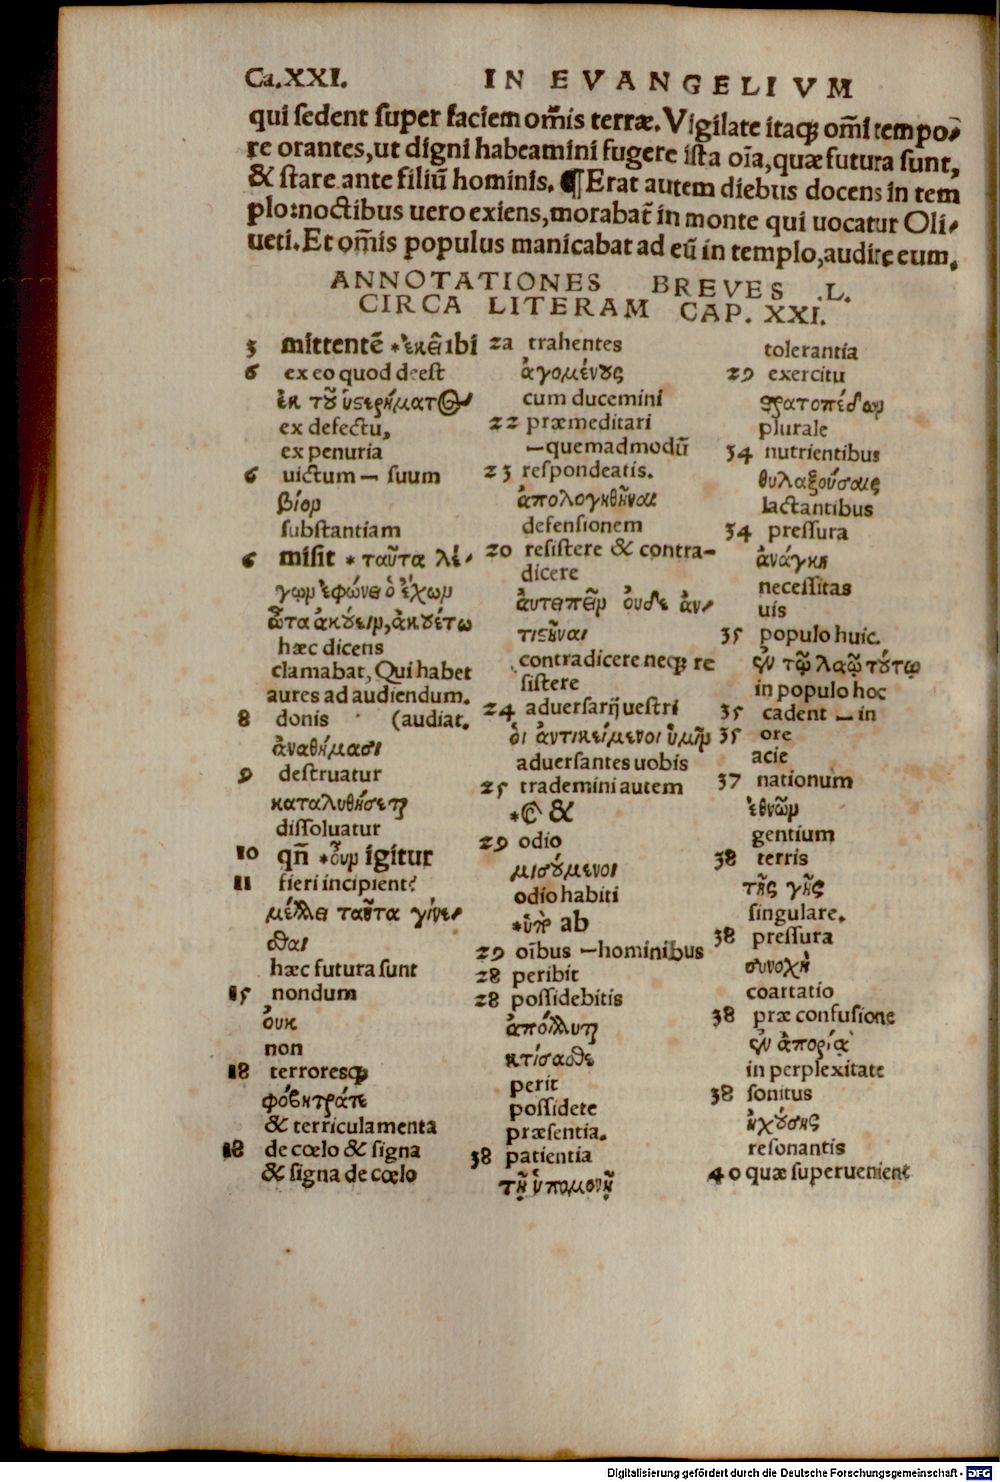 Ca.XXI. IN EVANGELIVM
qui sedent super faciem om̃is terræ. Vigilate itaqꝫ om̃i tempo-
re orantes, ut digni habeamini fugere ista oĩa, quæ futura sunt,
& stare ante filiũ hominis. ¶ Erat autem diebus docens in tem
plo: noctibus uero exiens, morabat̃ in monte qui uocatur Oli-
ueti. Et om̃is populus manicabat ad eũ in templo, audire eum.
ANNOTATIONES BREVES .L.
CIRCA LITERAM CAP. XXI.
3 mittentẽ *ἐκεῖ ibi
6 ex eo quod deest
ἐκ τοῦ ὑστερήματος
ex defectu,
ex penuria
6 uictum — suum
βίον
substantiam
6 misit * ταῦτα λέ-
γων ἐφώνει ὁ ἔχων
ὦτα ἀκούειν, ἀκουέτω
hæc dicens
clamabat, Qui habet
aures ad audiendum.
8 donis (audiat.
ἀναθήμασι
9 destruatur
καταλυθήσεται
dissoluatur
10 qñ *οὖν igitur
11 fieri incipient
μέλλει ταῦτα γίνε-
σθαι
hæc futura sunt
15 nondum
οὐκ
non
18 terroresqꝫ
φόβητράτε
& terriculamenta
18 de cœlo & signa
& signa de cœlo
22 trahentes
ἀγομένους
cum ducemini
22 præmeditari
—quemadmodũ
23 respondeatis.
ἀπολογηθῆναι
defensionem
20 resistere & contra-
dicere
ἀντειπεῖν ουδε ἀν-
τιστῆναι
contradicere neqꝫ re
sistere
24 aduersarij uestri
ὁι ἀντικείμενοι ὑμῖν
aduersantes uobis
25 trademini autem
*& &
29 odio
μισούμενοι
odio habiti
*ὑπὸ ab
29 oĩbus —hominibus
28 peribit
28 possidebitis
ἀπόλλυται
κτίσασθε
perit
possidete
præsentia.
38 patientia
τῇ ὑπομονῇ
tolerantia
29 exercitu
στρατοπέδων
plurale
34 nutrientibus
θυλαξούσαις
lactantibus
34 pressura
ἀνάγκη
necessitas
uis
35 populo huic.
ἐν τῷ λαῷ τούτῳ
in populo hoc
35 cadent — in
35 ore
acie
37 nationum
ἐθνῶν
gentium
38 terris
τῆς γῆς
singulare.
38 pressura
συνοχὴ
coartatio
38 præ confusione
ἐν ἀπορίᾳ
in perplexitate
38 sonitus
ἠχούσης
resonantis
40 quæ superuenient
Digitalisierung gefördert durch die Deutsche Forschungsgemeinschaft - DFG